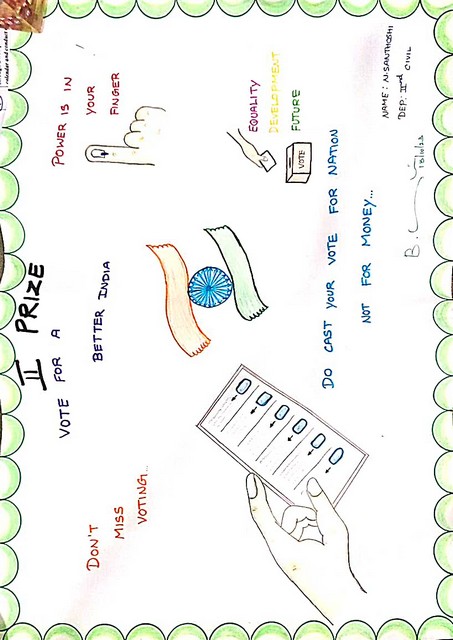 II PRIZE
VOTE FOR A
BETTER INDIA
DON'T
MISS
VOTING...
POWER IS IN
YOUR
FINGER
EQUALITY
DEVELOPMENT
FUTURE
VOTE
DO CAST YOUR VOTE FOR NATION
NOT FOR MONEY...
NAME: N.SANTHOSHI
DEP: IInd CIVIL